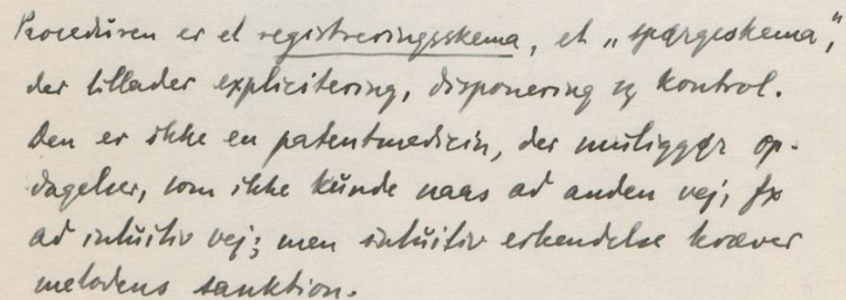 Proceduren er et registreringsskema, et „spørgeskema“,
der tillader explicitering, disponering og kontrol.
Den er ikke en patentmedicin, der muliggør op-
dagelser, som ikke kunde naas ad anden vej, fx
ad intuitiv vej; men intuitiv erkendelse kræver
metodens sanktion.